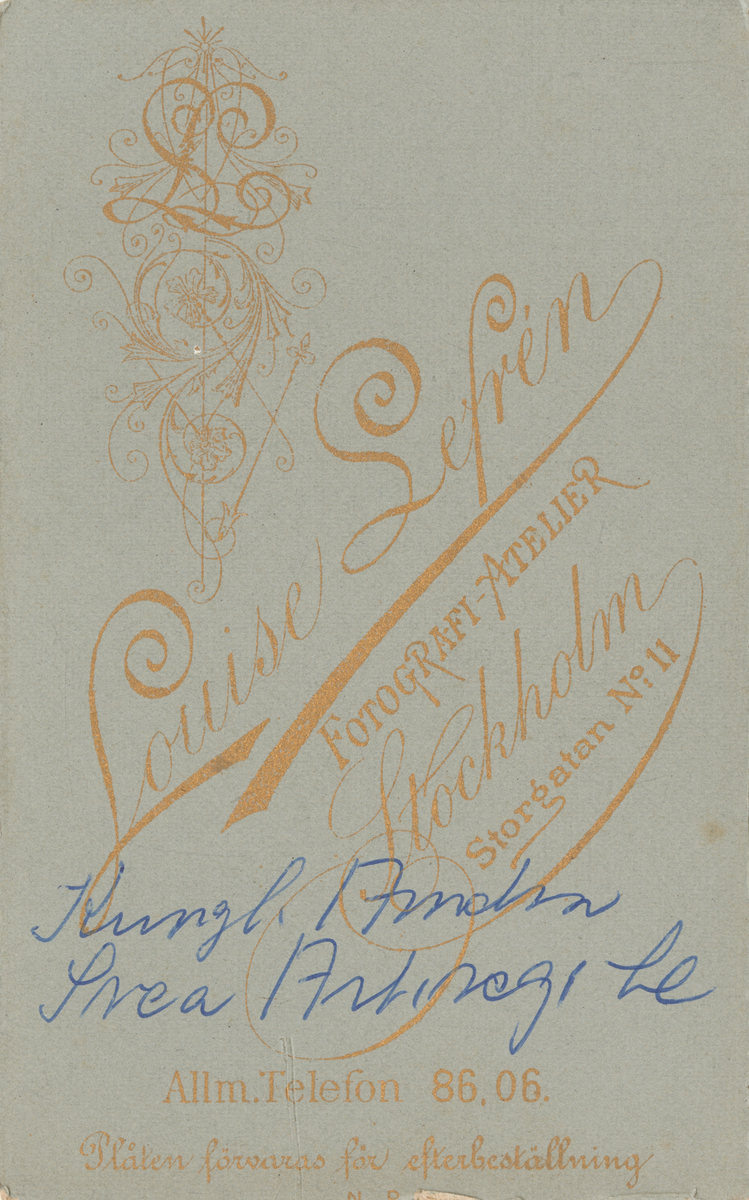 LL
Louise Lefrén
FOTOGRAFI-ATELIER
Stockholm
Storgatan No. 11
Kungl.
Svea Art.reg.
Allm. Telefon 86,06.
Plåten förvaras för efterbeställning
N. R.